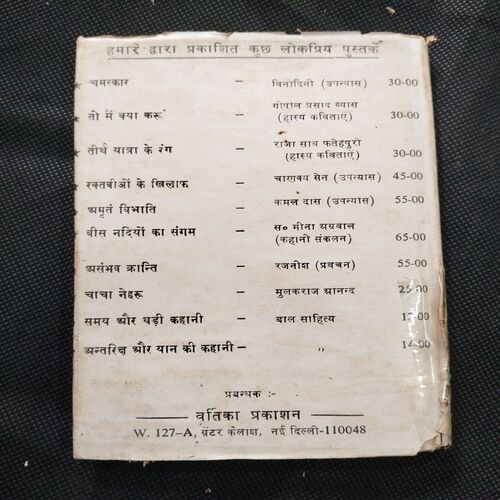 हमारे द्वारा प्रकाशित कुछ लोकप्रिय पुस्तकें
चमत्कार – विनोदिनी (उपन्यास) 30-00
गोपाल प्रसाद व्यास
तो मैं क्या करूं – (हास्य कविताएं) 30-00
राजा साब फतेहपुरी
तीर्थ यात्रा के रंग – (हास्य कविताएं) 30-00
रक्तबीओं के खिलाफ – चाणक्य सेन (उपन्यास) 45-00
अमृतं विभाति – कमल दास (उपन्यास) 55-00
बीस नदियों का संगम – स० मीना अग्रवाल
(कहानी संकलन) 65-00
असंभव क्रान्ति – रजनीश (प्रवचन) 55-00
चाचा नेहरू – मुलकराज आनन्द 25-00
समय और घड़ी कहानी – बाल साहित्य 12-00
अन्तरिक्ष और यान की कहानी – ,, 14-00
प्रबन्धक :-
वर्तिका प्रकाशन
W. 127-A, ग्रेटर कैलाश, नई दिल्ली-110048